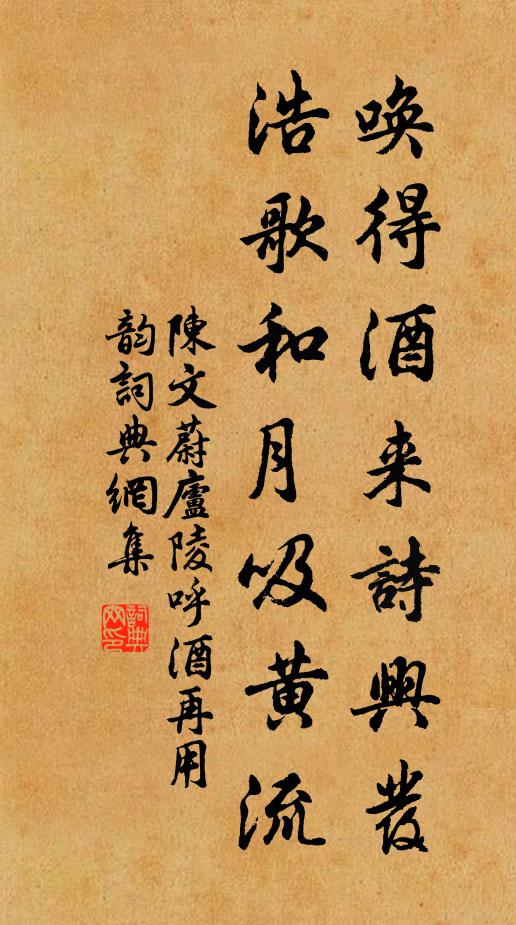 唤得酒来詩興發
浩歌和月吸黄流
陳文蔚廬陵呼酒再用
韵詞典網集
詞典網印